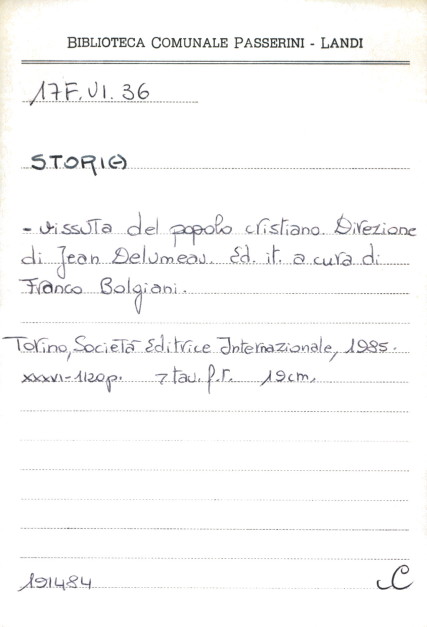 BIBLIOTECA COMUNALE PASSERINI - LANDI
17F.VI.36
STORI(A)
- vissuta del popolo cristiano. Direzione
di Jean Delumeau. Ed. it. a cura di
Franco Bolgiani.
Torino, Società Editrice Internazionale, 1985.
XXXVI-1120p. 7 tav. f.t. 19cm.
191484 C